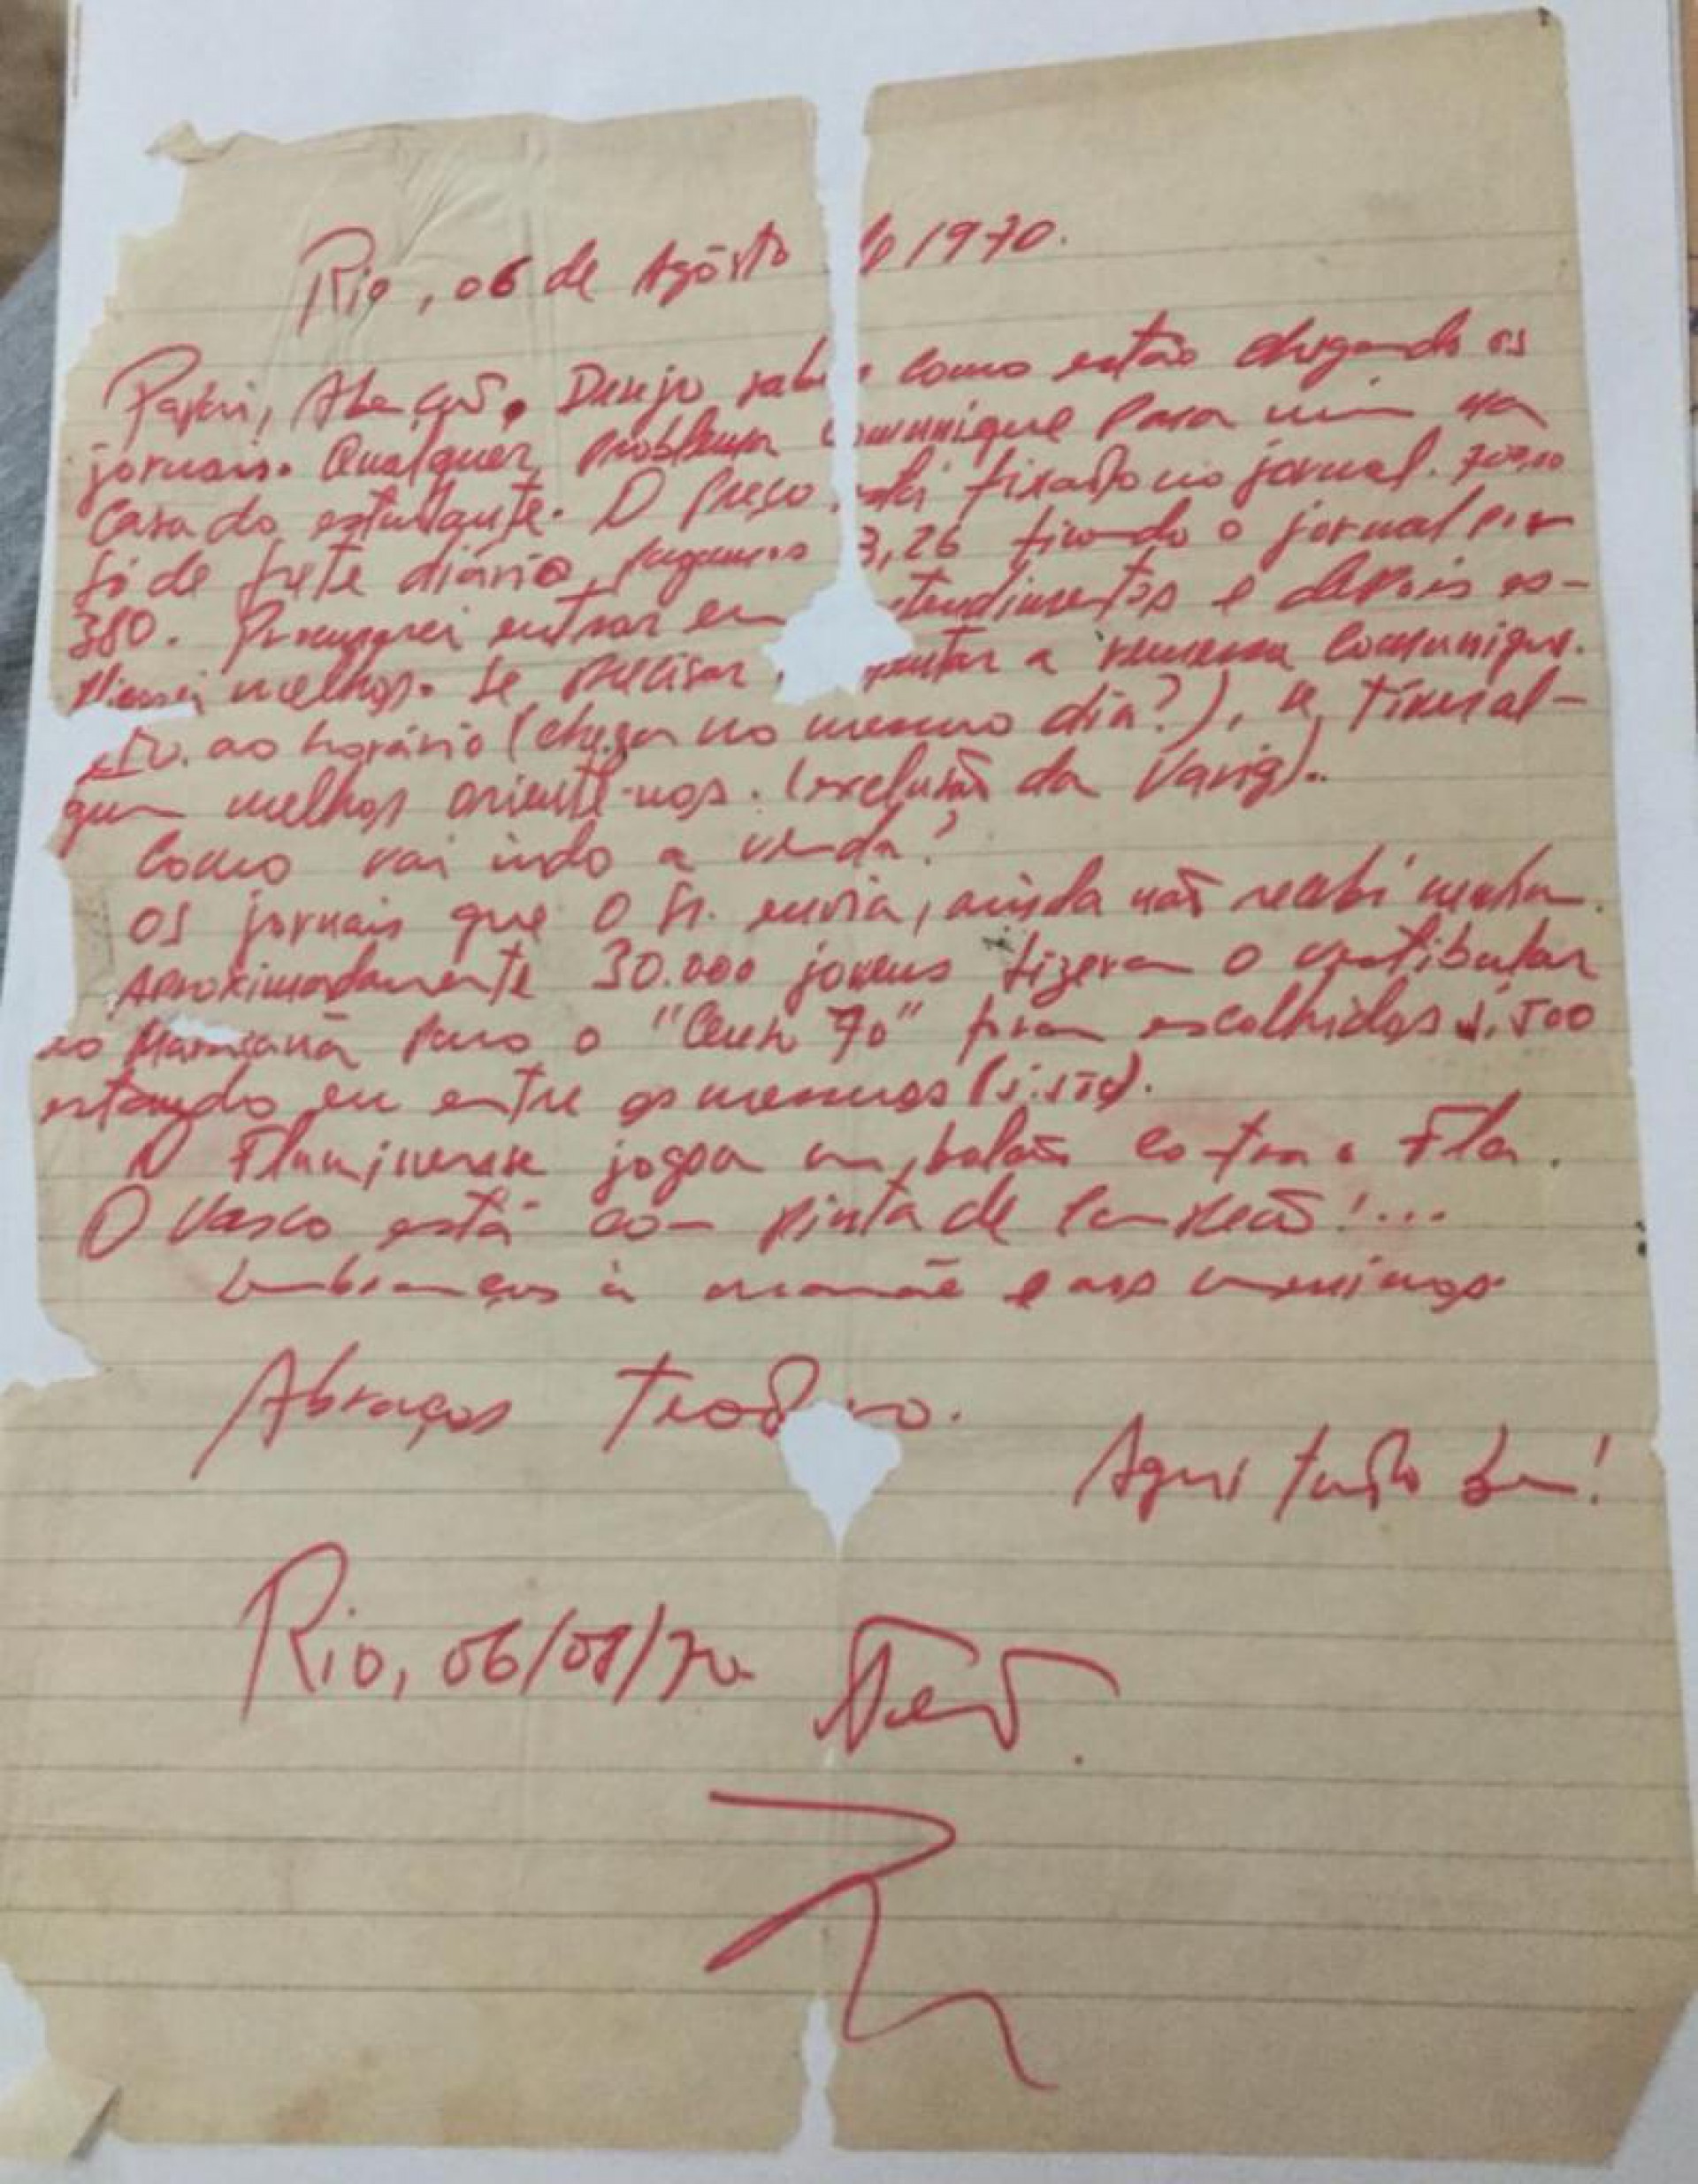 Rio, 06 de Agôsto de 1970.
Papai, Abenção. Desejo sabe como estão chegando os
jornais. Qualquer problema comunique para mim na
Casa do estudante. O preço está fixado no jornal.
Só de frete diário pagamos 3,26 ficando o jornal por
380. Procurarei entrar em tendimentos e depois es-
melhor. Se precisar a remessa comunique.
ao horário (chega no mesmo dia?), se tiver al-
gum melhor oriente-nos. (exclusão da Varig).
Como vai indo a venda?
Os jornais que o Sr. envia, ainda não recebi nenhum.
Aproximadamente 30.000 jovens fizeram o vestibular
no Maracanã para o 70" foram escolhidos 1.500
estando eu entre os mesmos
O Fluminense jogou um bolão contra o Fla.
O Vasco está com pinta de campeão!...
Lembranças à mamãe e aos meninos.
Abraços
Aqui tudo bem!
Rio, 06/08/70